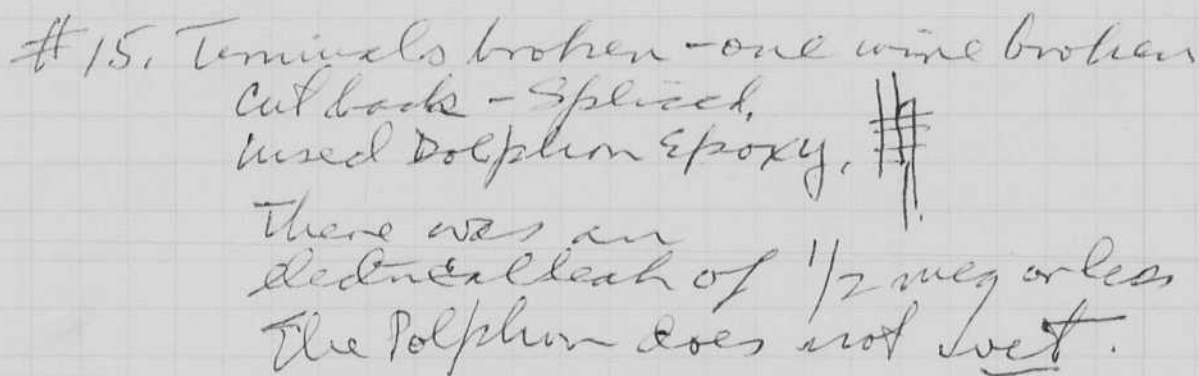 #15. Terminals broken - one wire broken
cut back - Spliced,
used Dolphon Epoxy. #
There was an
electrical leak of 1/2 meg or less
The Dolphon does not wet.